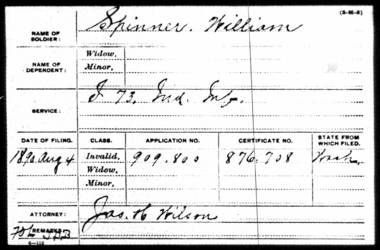 (3-86-8)
NAME OF SOLDIER: Spinner, William
NAME OF DEPENDENT: Widow,
Minor,
SERVICE: I 73, Ind. Inf.
DATE OF FILING. CLASS. APPLICATION NO. CERTIFICATE NO. STATE FROM WHICH FILED.
1890 Aug 4 Invalid, 909.800 876.708 Wash.
Widow,
Minor,
ATTORNEY: Jas. H Wilson
REMARKS: